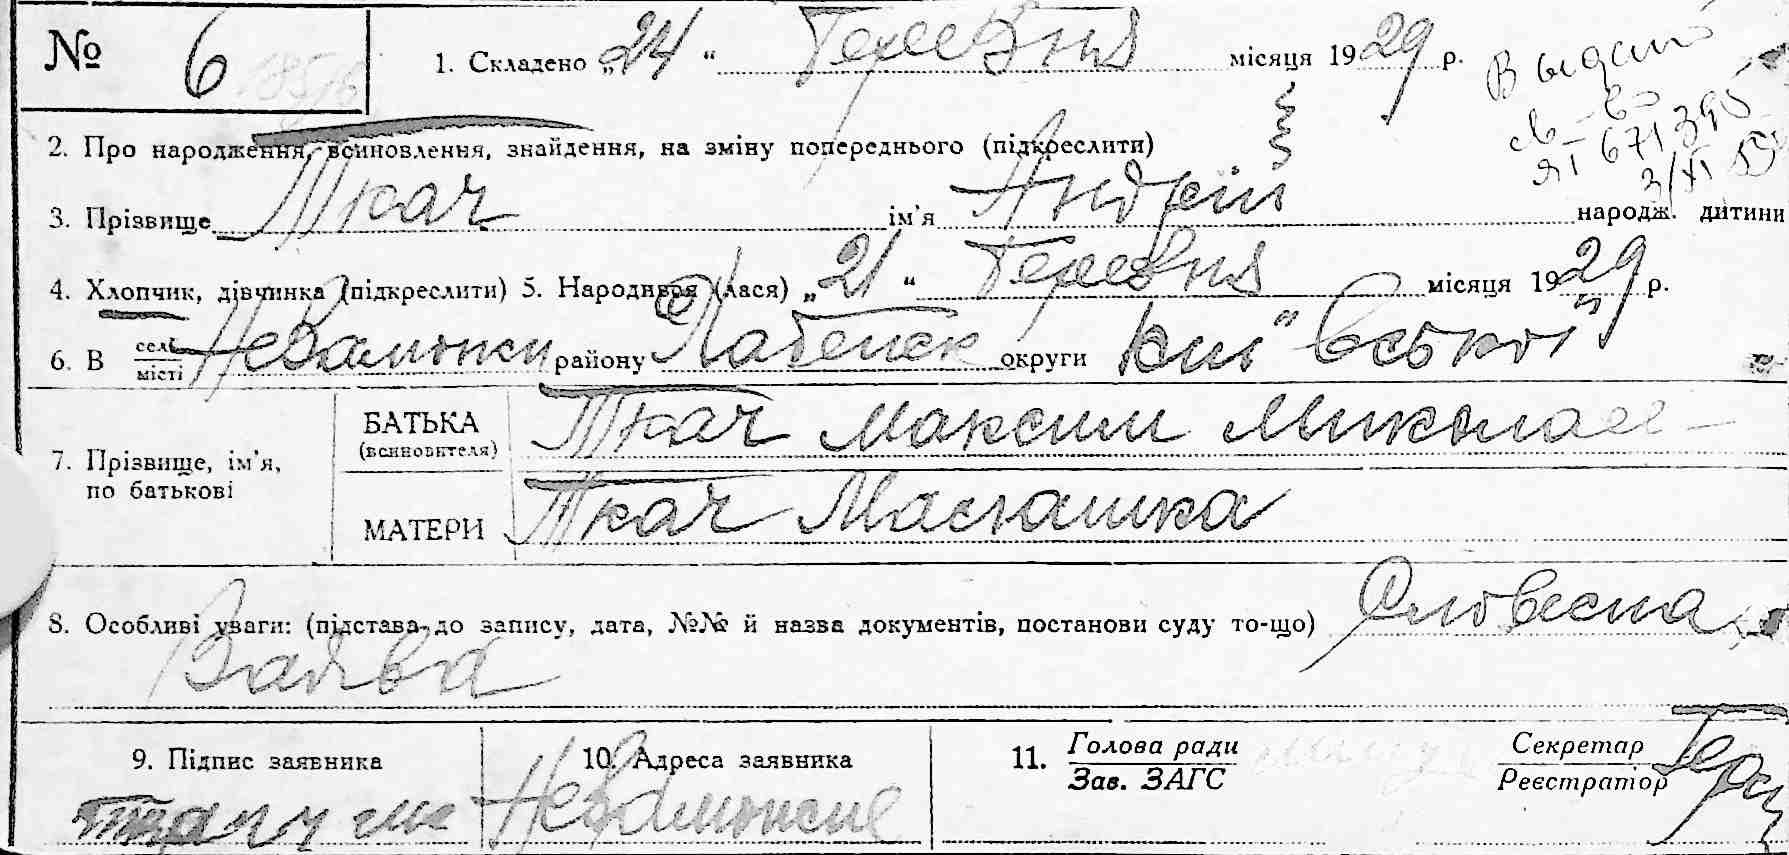 № 6 1. Складено „24“ Березня місяця 1929 р.
Выдано
св-во
ЯГ 671395
3/XI 55
2. Про народження, всиновлення, знайдення, на зміну попереднього (підкреслити)
3. Прізвище Ткач ім'я Андрій народж. дитини
4. Хлопчик, дівчинка (підкреслити) 5. Народився (лася) „21“ Березня місяця 1929 р.
6. В селі Незаможки району округи Київської
місті
7. Прізвище, ім'я, по батькові
БАТЬКА (всиновителя) Ткач Максим
МАТЕРИ Ткач
8. Особливі уваги: (підстава до запису, дата, №№ й назва документів, постанови суду то-що) Словесна
Заява
9. Підпис заявника 10. Адреса заявника 11. Голова ради Секретар
Зав. ЗАГС Реєстратор